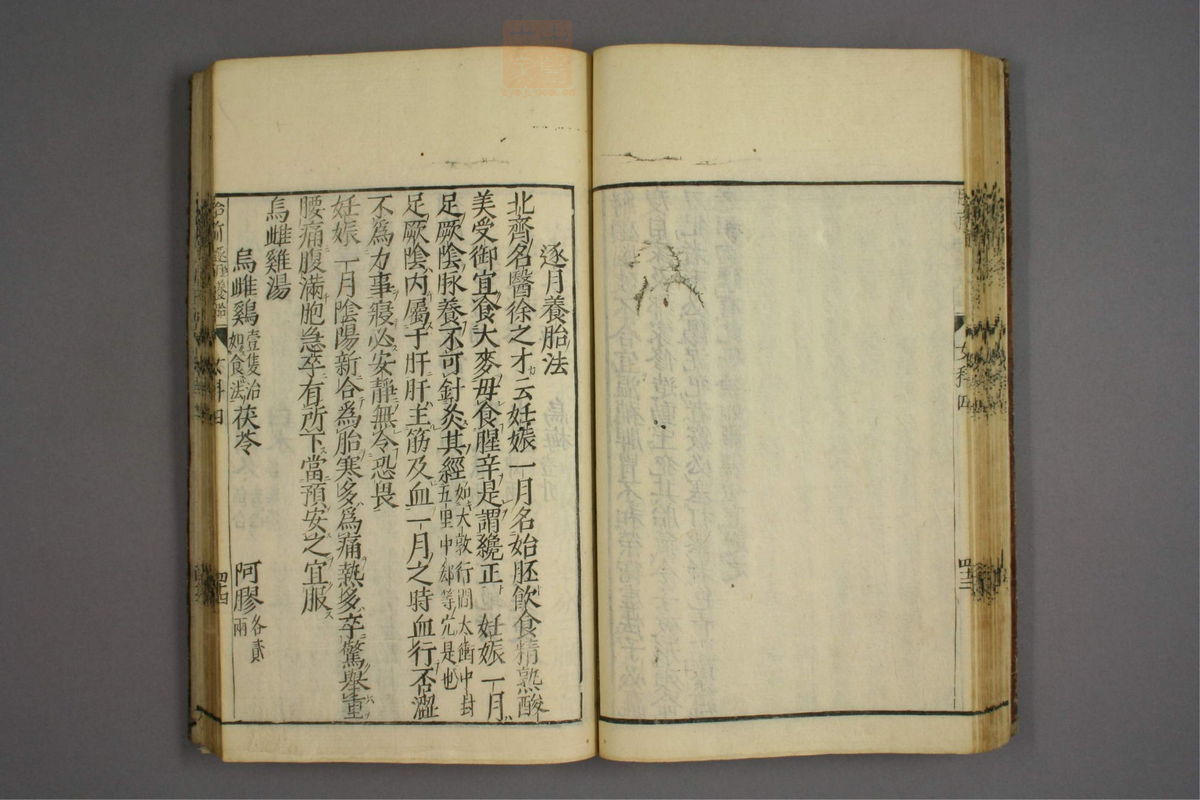 四三
逐月養胎法
北齊名醫徐之才云妊娠一月名始胚飲食精熟酸
美受御宜食大麥毋食腥辛是謂纔正 妊娠一月
足厥陰脉養不可針灸其經如大敦行間太衝中封五里中郄等穴是也
足厥陰内屬于肝肝主筋及血一月之時血行否澀
不爲力事寢必安靜無令恐畏
妊娠一月陰陽新合爲胎寒多爲痛熱多卒驚舉重
腰痛腹滿胞急卒有所下當預安之宜服
烏雌雞湯
烏雌鷄壹隻治如食法 茯苓 阿膠各貳兩
女科四
四四